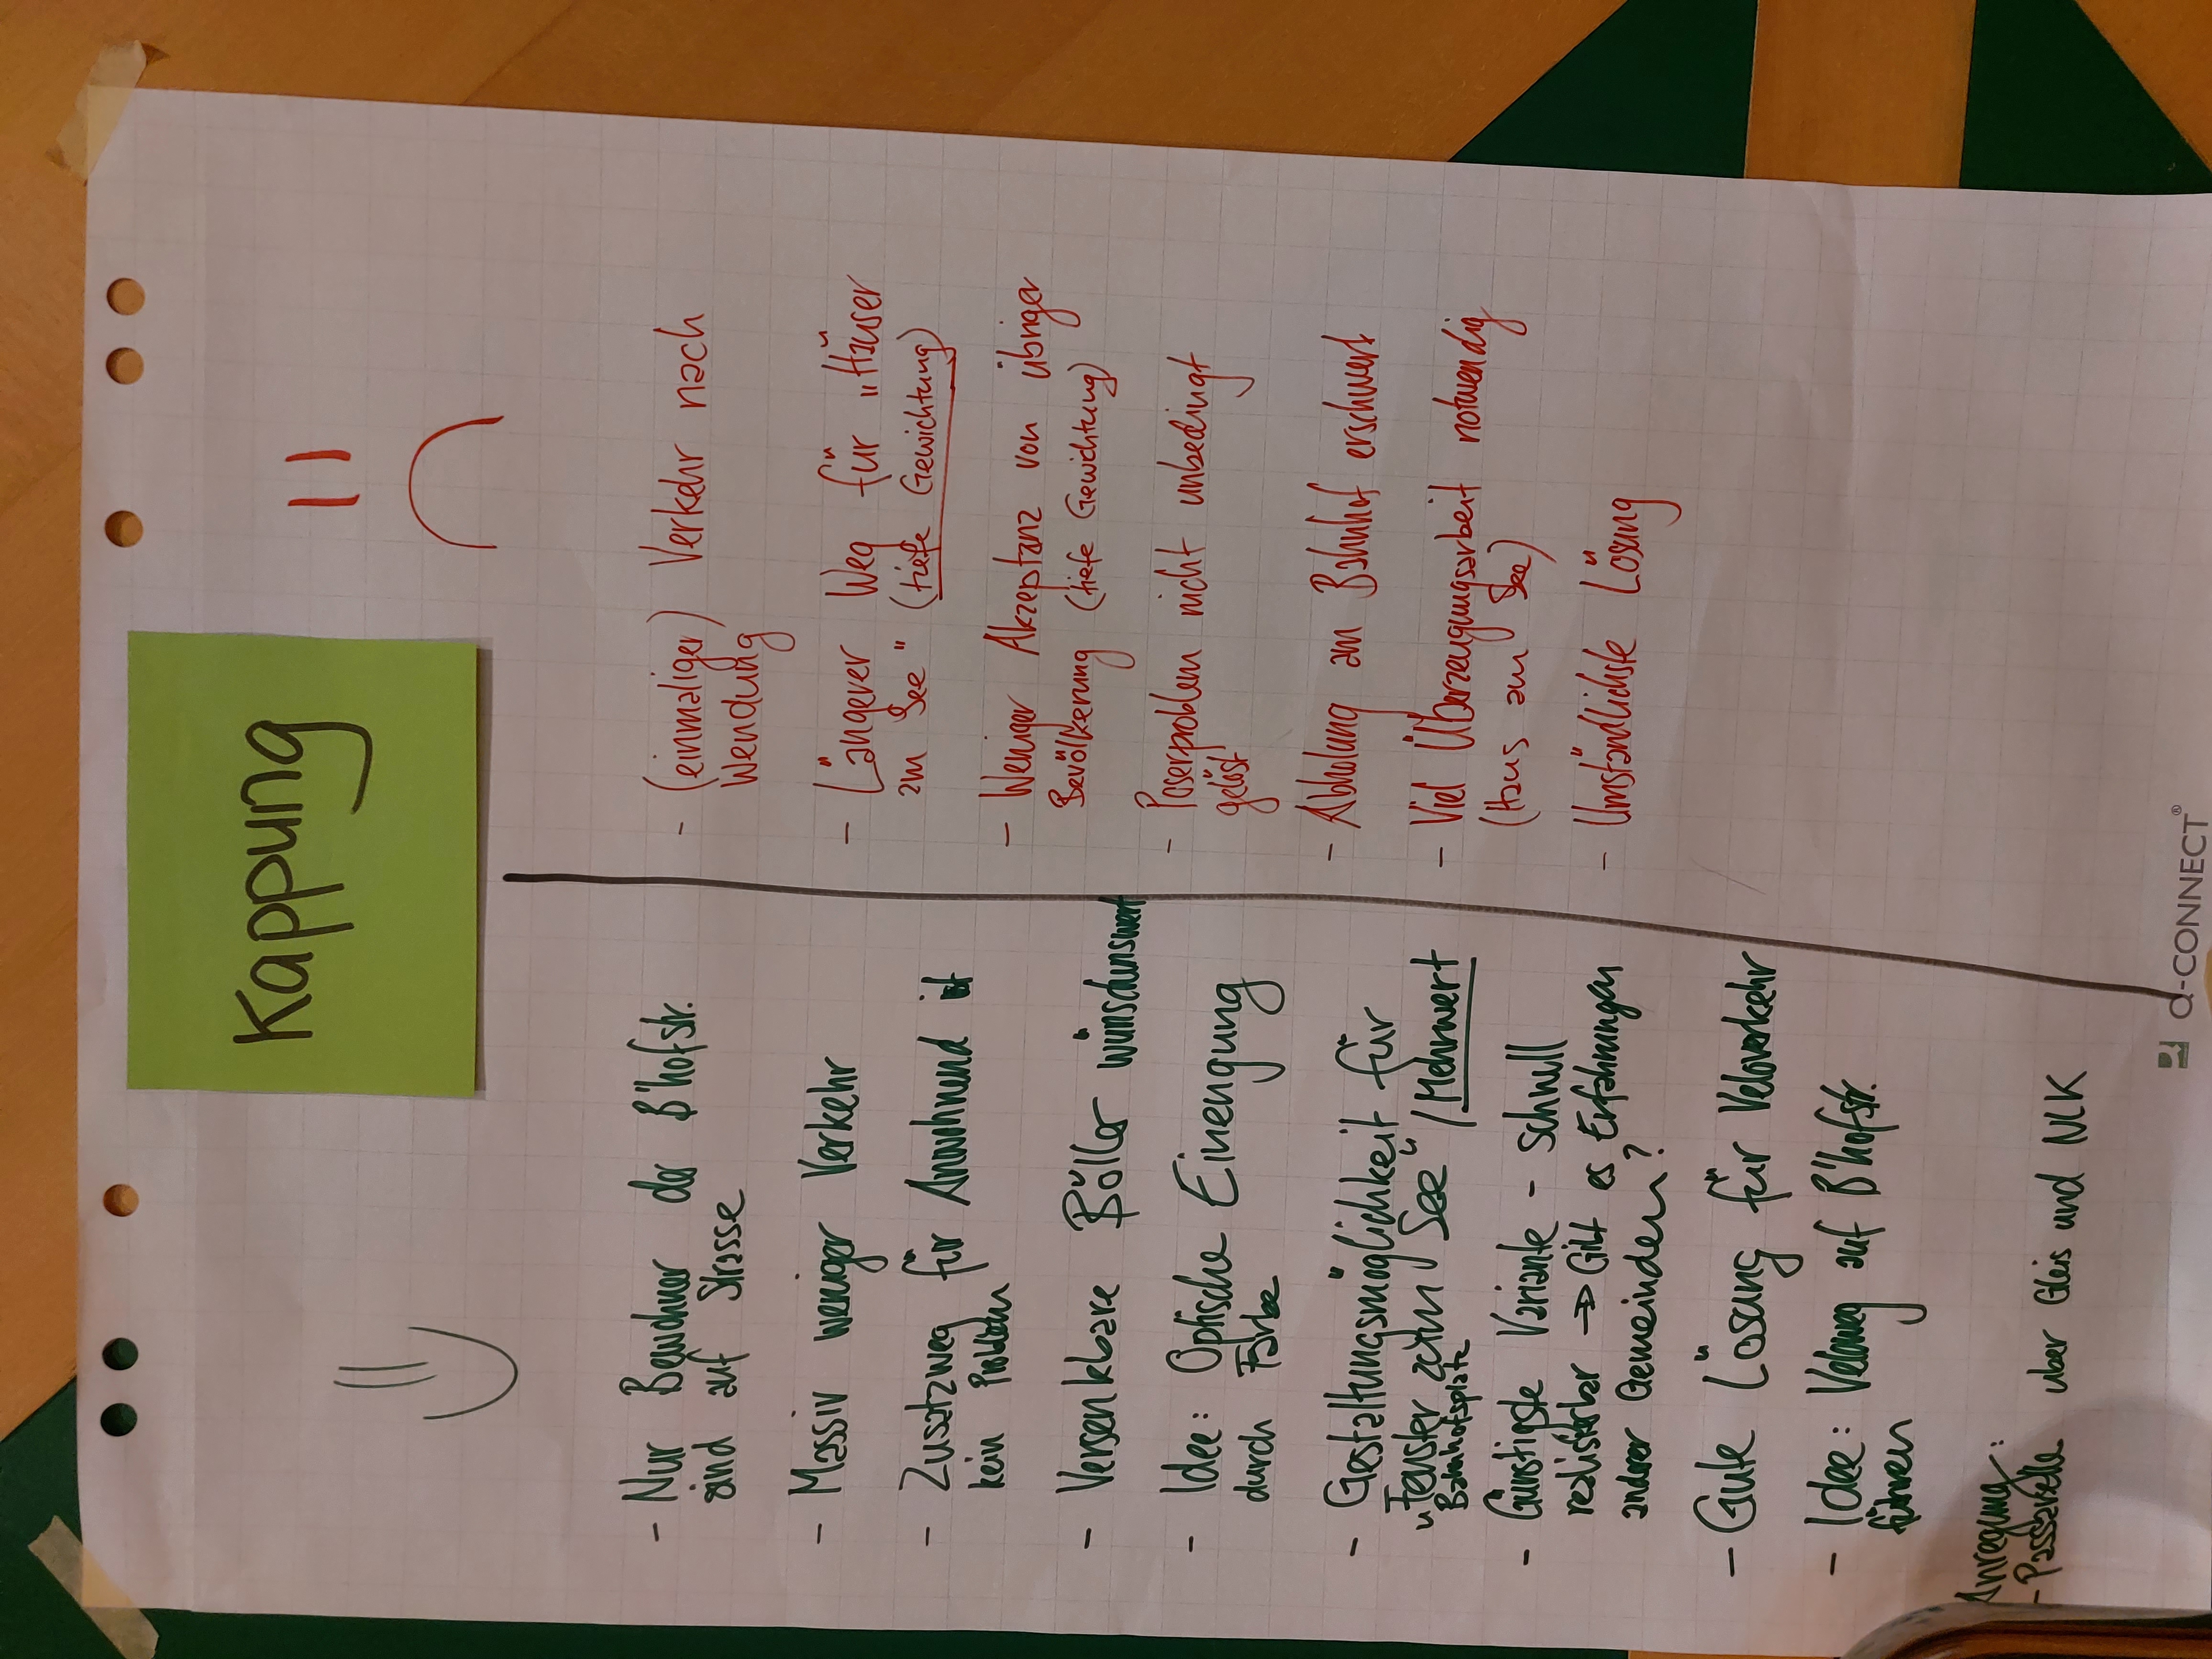 Kappung
- Nur Bewohner der B'hofstr.
sind auf Strasse
- Massiv weniger Verkehr
- Zusatzweg für Anwohnend ist
kein Problem
- Versenkbare Böller wünschunswert
- Idee: Optische Einengung
durch Farbe
- Gestaltungsmöglichkeit für
„Fenster zum See" / Mehrwert
Bahnhofsplatz
- Günstigste Variante - schnell
realisierbar => Gibt es Erfahrungen
anderer Gemeinden?
- Gute Lösung für Veloverkehr
- Idee: Veloweg auf B'hofstr.
führen
Anregung:
- Passarelle über Gleis und NLK
- (einmaliger) Verkehr nach
Wendung
- Längerer Weg für „Häuser
am See" (tiefe Gewichtung)
- Weniger Akzeptanz von übriger
Bevölkerung (tiefe Gewichtung)
- Poserproblem nicht unbedingt
gelöst
- Abholung am Bahnhof erschwert
- Viel Überzeugungsarbeit notwendig
(Haus am See)
- Umständlichste Lösung
Q-CONNECT®